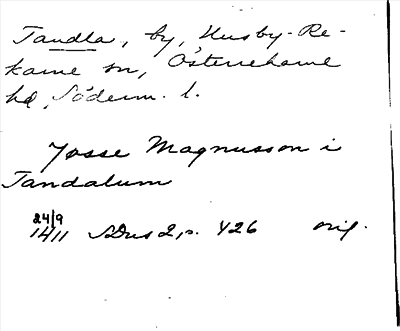 Tandla, by, Husby-Re-
karne sn, Österrekarne
hd, Söderm. l.
Josse Magnusson i
Tandalum
24/9
1411 SDns 2, s. 426 orig.